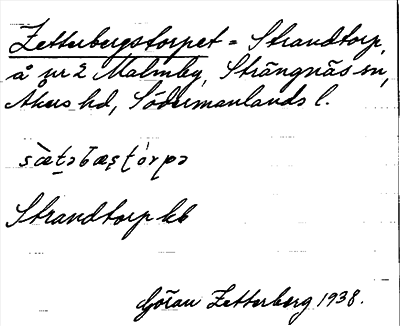 Zetterbergstorpet = Strandtorp,
å nr 2 Malmby, Strängnäs sn,
Åkers hd, Södermanlands l.
sæ̀t̠əbæșt̠órpə
Strandtorp kb
Göran Zetterberg 1938.